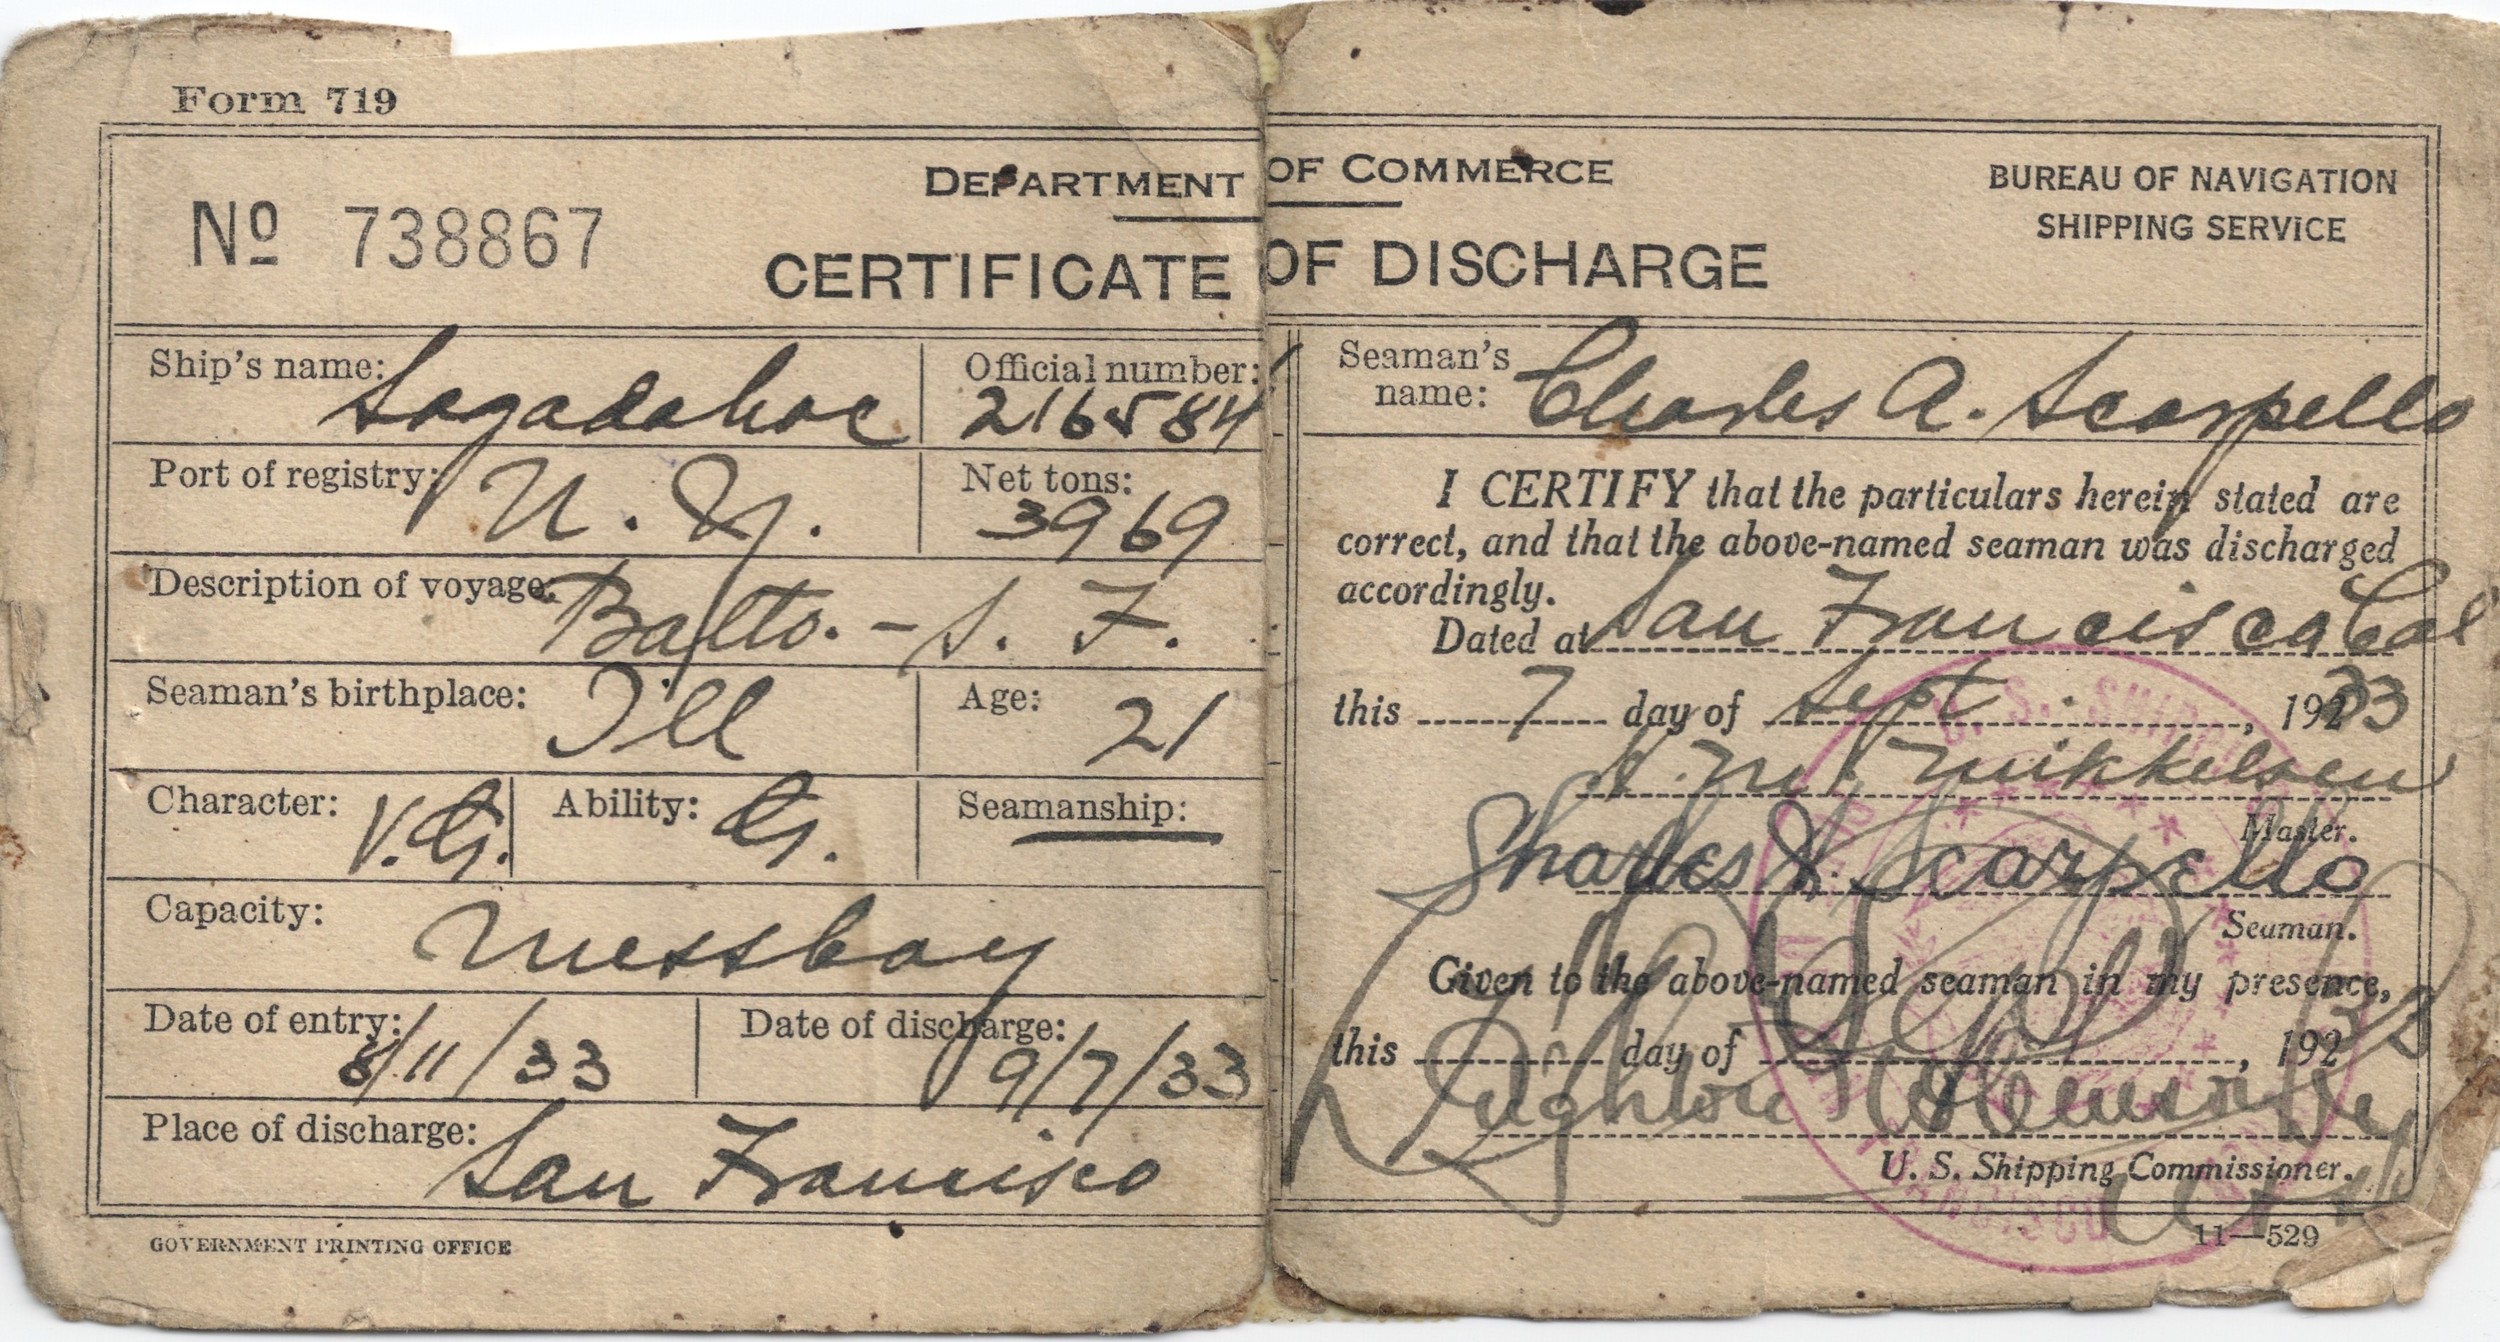 Form 719
DEPARTMENT OF COMMERCE
BUREAU OF NAVIGATION
SHIPPING SERVICE
No 738867
CERTIFICATE OF DISCHARGE
Ship's name: Sagadahoc
Official number: 216584
Port of registry: N. Y.
Net tons: 3969
Description of voyage: Balto. - S. F.
Seaman's birthplace: Ill
Age: 21
Character: V.G.
Ability: G.
Seamanship:
Capacity: Messboy
Date of entry: 8/11/33
Date of discharge: 9/7/33
Place of discharge: San Francisco
GOVERNMENT PRINTING OFFICE
Seaman's name: Charles A. Scarpello
I CERTIFY that the particulars herein stated are
correct, and that the above-named seaman was discharged
accordingly.
Dated at San Francisco Cal
this 7 day of Sept, 1933
Mikkelsen
Master.
Charles A. Scarpello
Seaman.
Given to the above-named seaman in my presence,
this day of Sept, 192
U. S. Shipping Commissioner.
11—529